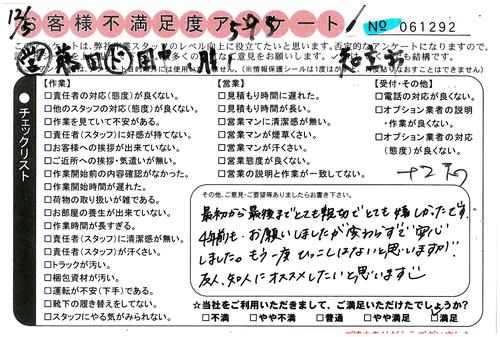 12/5
お客様不満足度アンケート
595
No 061292
このアンケートは、弊社作業スタッフのレベル向上に役立てたいと思います。否定的なアンケートになりますので、
【作業】
□責任者の対応(態度)が良くない。
□他のスタッフの対応(態度)が良くない。
□作業を見ていて不安がある。
□責任者(スタッフ)に好感が持てない。
□お客様への挨拶が出来ていない。
□ご近所への挨拶・気遣いが無い。
□作業開始前の内容確認がなかった。
□作業開始時間が遅れた。
□荷物の取り扱いが雑である。
□お部屋の養生が出来ていない。
□作業時間が長すぎる。
□責任者(スタッフ)に清潔感が無い。
□責任者(スタッフ)が汗くさい。
□トラックが汚い。
□梱包資材が汚い。
□運転が不安(下手)である。
□靴下の履き替えをしてない。
□スタッフにやる気がみられない。
【営業】
□見積もり時間に遅れた。
□見積もり時間が長い。
□営業マンに清潔感が無い。
□営業マンが煙草くさい。
□営業マンが汗くさい。
□営業態度が良くない。
□営業の説明と作業が一致してない。
【受付・その他】
□電話の対応が良くない。
□オプション業者の説明
・作業が良くない。
□オプション業者の対応
(態度)が良くない。
●チェックリスト
その他、ご意見・ご要望等ありましたらお書き下さい。
最初から最後までとても親切でとても嬉しかったです。
4年前も、お願いしましたが変わらずで安心
しました。もう一度ひっこしはないと思いますが
友人、知人にオススメしたいと思います
☆当社をご利用いただきまして、ご満足いただけたでしょうか?
□不満 □やや不満 □普通 □やや満足 □満足